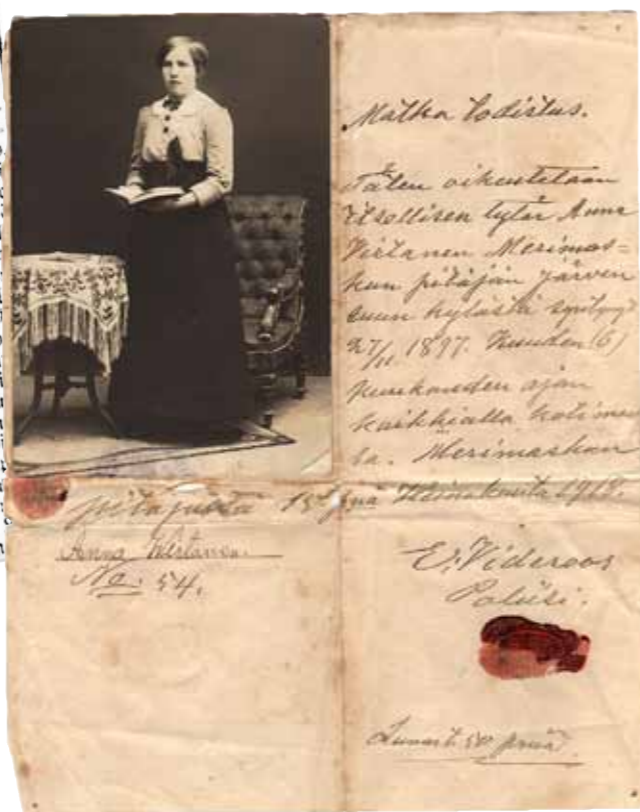 Matka todistus.
Täten oikeutetaan
itsellisen tytär Anna
Virtanen Merimas=
kun pitäjän Järven
suun kylästä syntynyt
27/11 1897. Kuuden (6)
kuukauden ajan
kaikkialla kotimaa
sa. Merimaskun
pitäjästä 15 p:nä Heinäkuuta 1918.
Anna Virtanen.
No. 54.
E. Videroos
Poliisi.
Lunast. 50 penniä